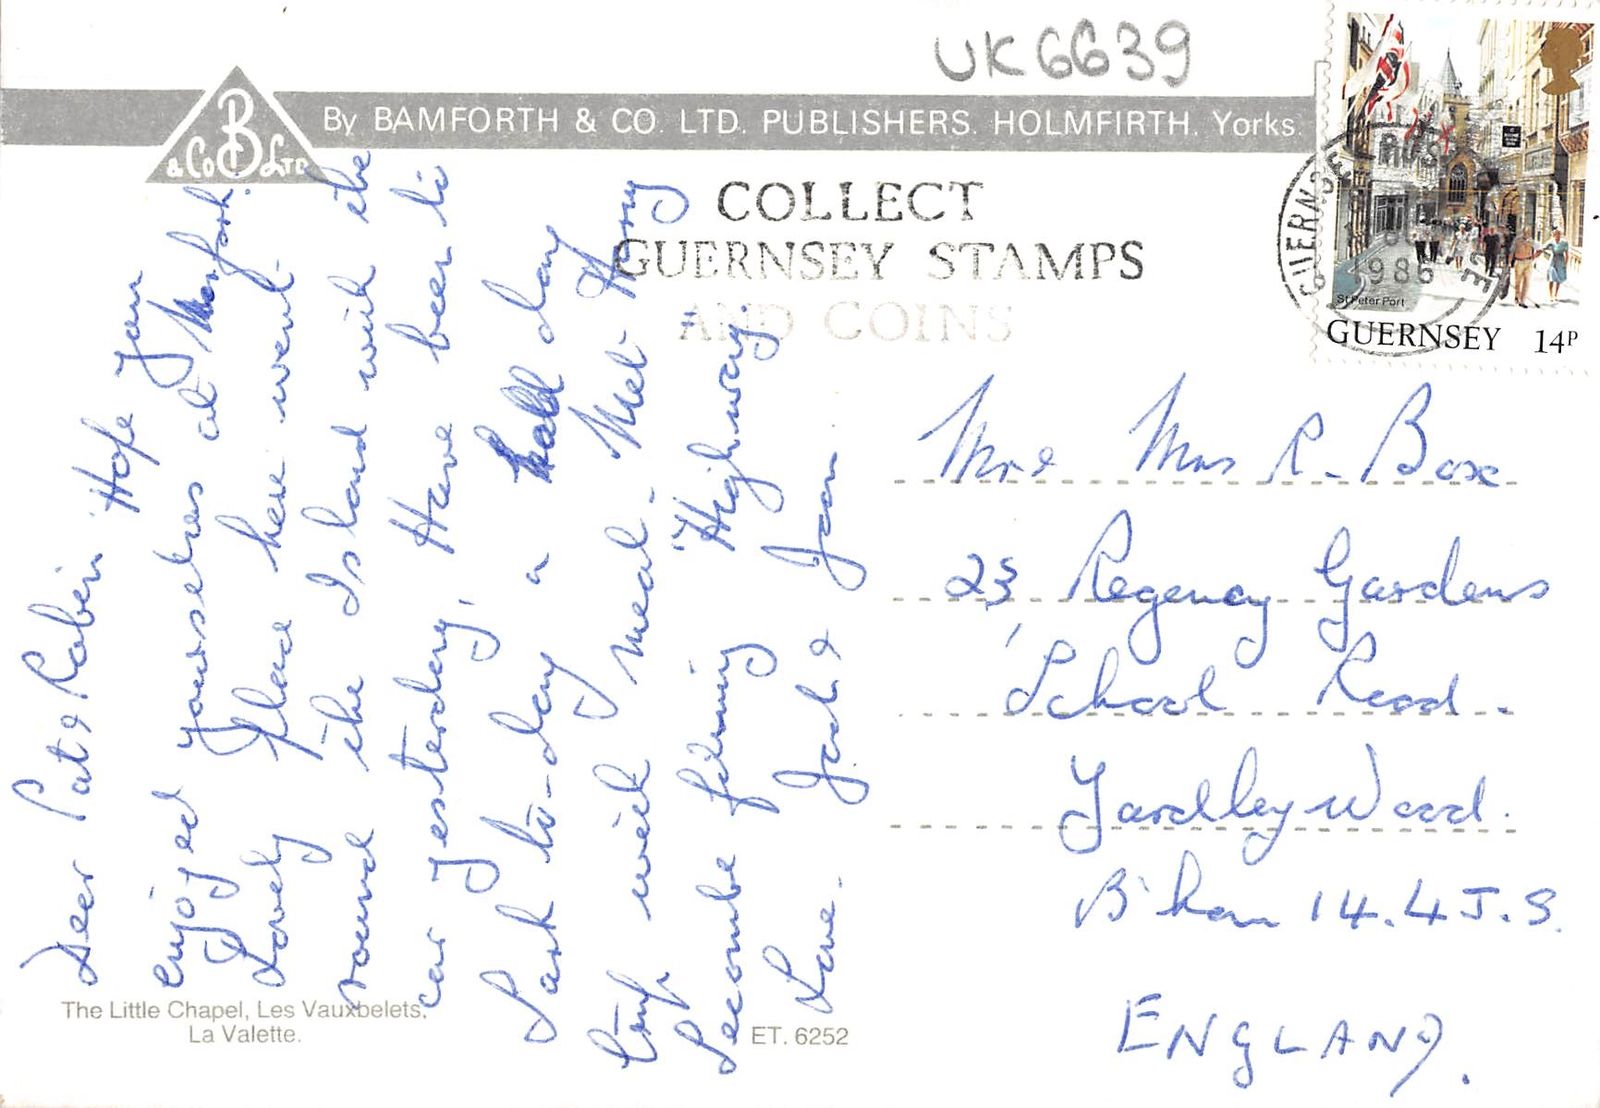 UK6639
By BAMFORTH & CO. LTD. PUBLISHERS. HOLMFIRTH. Yorks.
B
& Co LTD
COLLECT
GUERNSEY STAMPS
AND COINS
GUERNSEY
1986
St Peter Port
GUERNSEY 14P
Dear Pat & Robin Hope you
enjoyed yourselves at
Lovely place here went
round the Island with the
car yesterday. Have been to
Sark to-day a half day
trip with meal. Met Harry
Secombe filming "Highway
Love. Jack & Joan
Mr & Mrs R. Box
23 Regency Gardens
School Road.
Yardley Wood.
B'ham 14.4J.S.
ENGLAND.
The Little Chapel, Les Vauxbelets,
La Valette.
ET. 6252